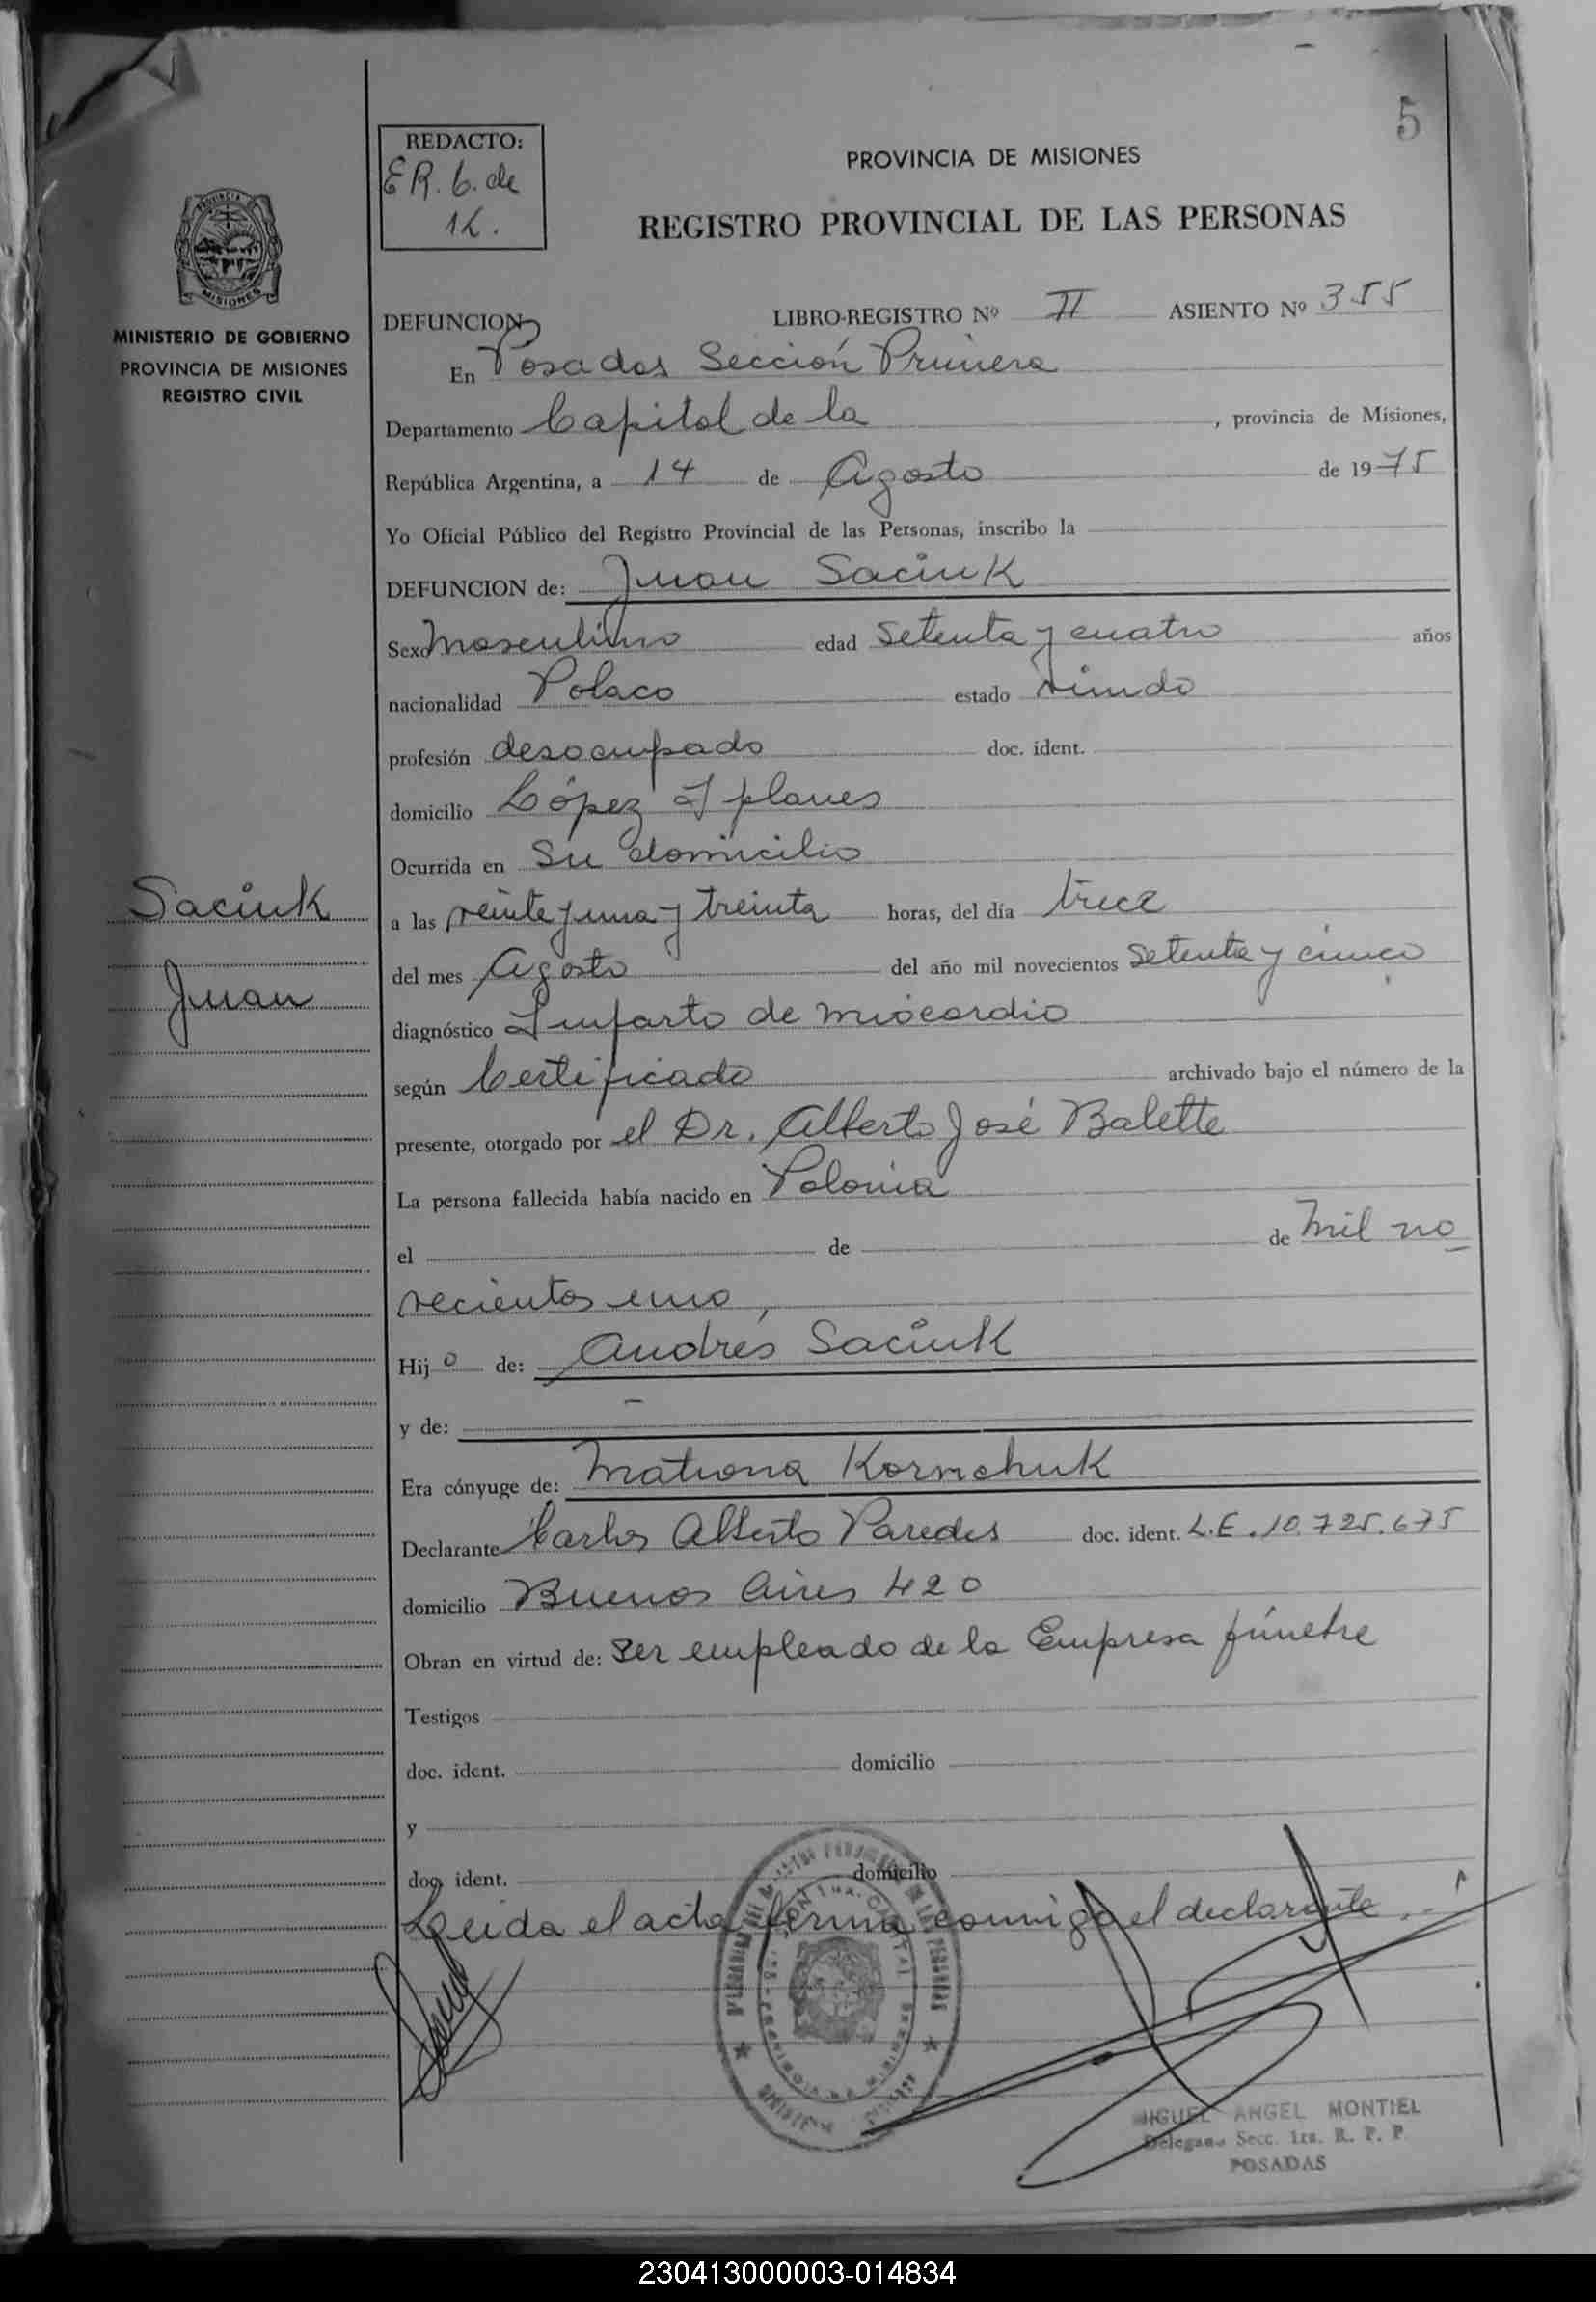 5
REDACTO:
E R. 6. de
1k.
PROVINCIA DE MISIONES
REGISTRO PROVINCIAL DE LAS PERSONAS
MISIONES
MINISTERIO DE GOBIERNO
PROVINCIA DE MISIONES
REGISTRO CIVIL
DEFUNCION LIBRO-REGISTRO Nº II ASIENTO Nº 355
En Posadas Sección Primera
Departamento Capital de la , provincia de Misiones,
República Argentina, a 14 de Agosto de 1975
Yo Oficial Público del Registro Provincial de las Personas, inscribo la
DEFUNCION de: Juan Saciuk
Sexo Masculino edad Setenta y cuatro años
nacionalidad Polaco estado viudo
profesión desocupado doc. ident.
domicilio López y planes
Ocurrida en Su domicilio
Saciuk
Juan
a las veinte y una y treinta horas, del día trece
del mes Agosto del año mil novecientos Setenta y cinco
diagnóstico Infarto de miocardio
según Certificado archivado bajo el número de la
presente, otorgado por el Dr. Alberto José Balette
La persona fallecida había nacido en Polonia
el de de Mil no
vecientos uno,
Hijo de: Andrés Saciuk
y de: —
Era cónyuge de: Matrona Kornchuk
Declarante Carlos Alberto Paredes doc. ident. L.E. 10.725.675
domicilio Buenos Aires 420
Obran en virtud de: Ser empleado de la Empresa fúnebre
Testigos
doc. ident. domicilio
y
doc. ident. domicilio
Leida el acta firma conmigo el declarante.
MIGUEL ANGEL MONTIEL
Delegado Secc. 1ra. R. P. P
POSADAS
230413000003-014834